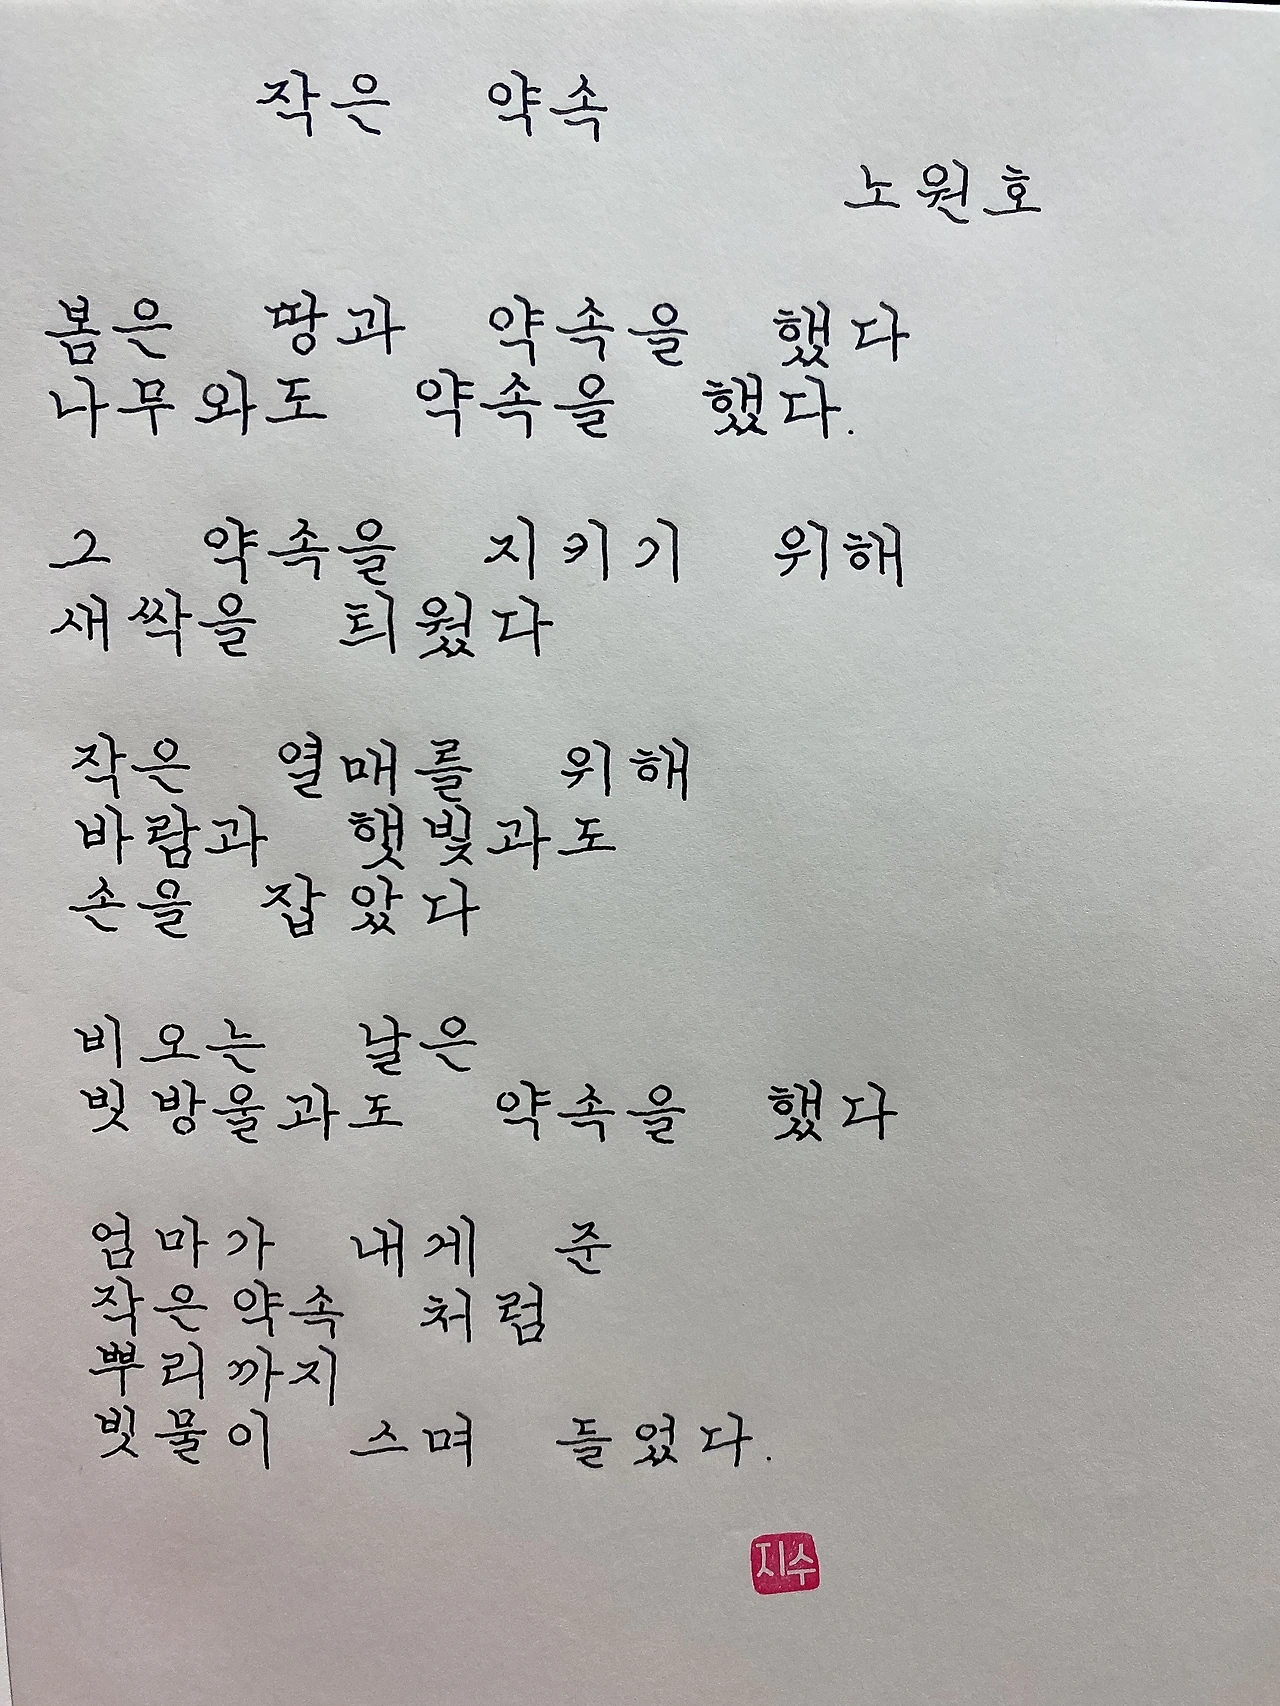 작은 약속
노원호
봄은 땅과 약속을 했다
나무와도 약속을 했다.
그 약속을 지키기 위해
새싹을 틔웠다
작은 열매를 위해
바람과 햇빛과도
손을 잡았다
비오는 날은
빗방울과도 약속을 했다
엄마가 내게 준
작은약속 처럼
뿌리까지
빗물이 스며 들었다.
지수